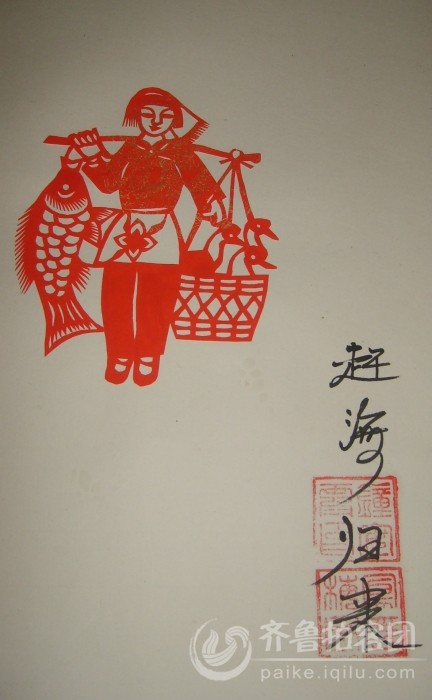 赶海归来
齐鲁拍客团
paike.iqilu.com